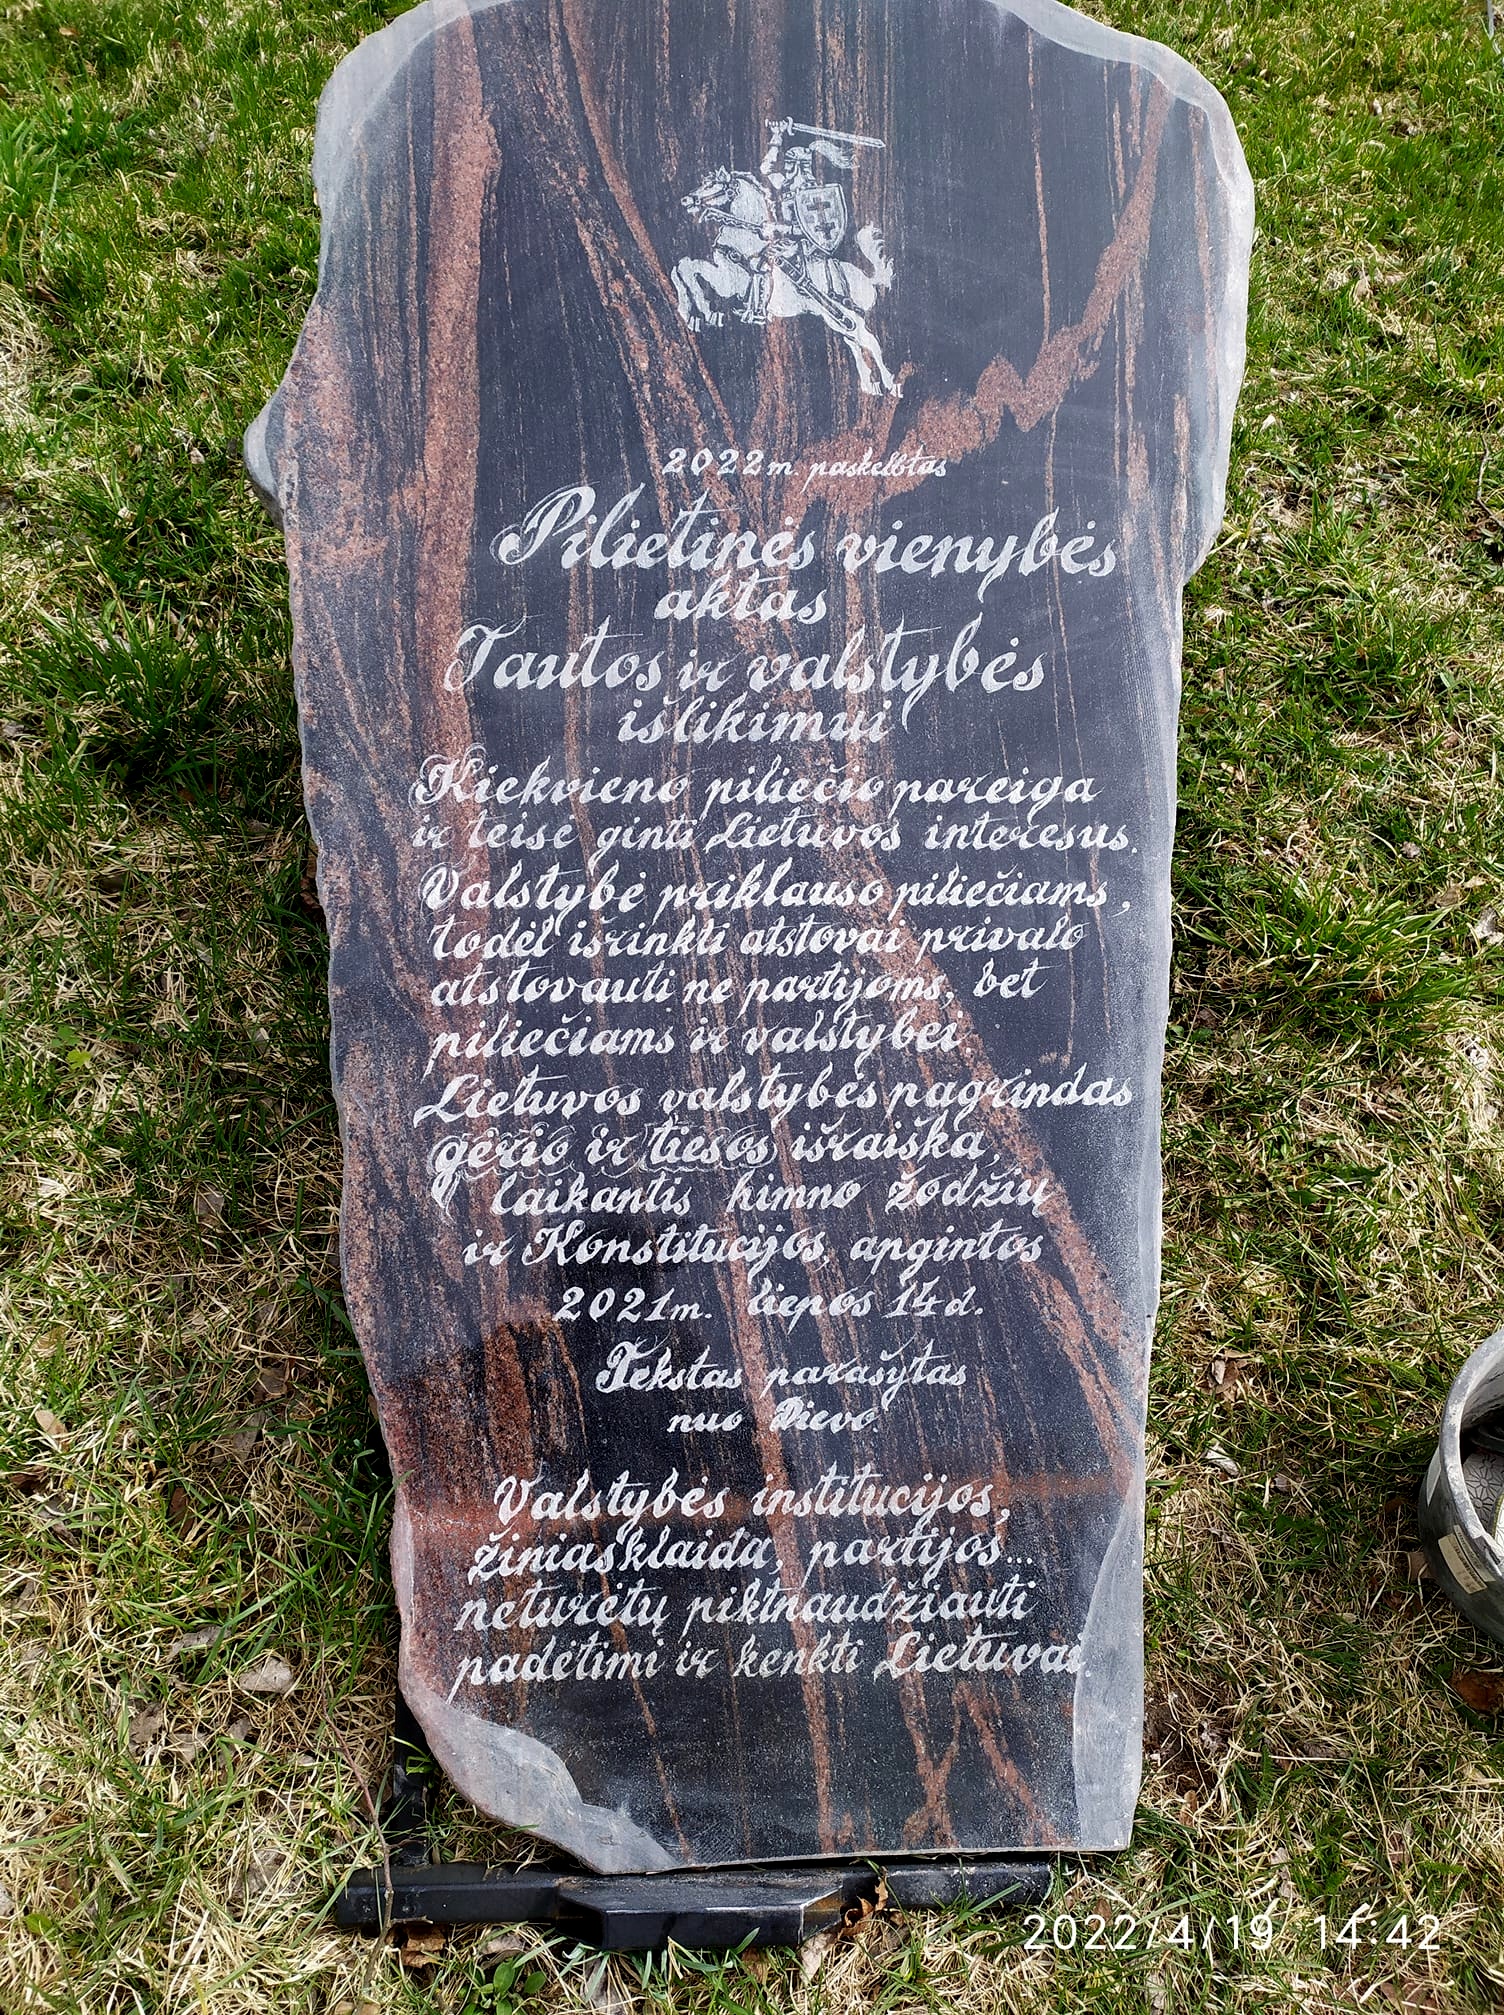 2022 m. paskelbtas
Pilietinės vienybės
aktas
Tautos ir valstybės
išlikimui
Kiekvieno piliečio pareiga
ir teisė ginti Lietuvos interesus.
Valstybė priklauso piliečiams,
todėl išrinkti atstovai privalo
atstovauti ne partijoms, bet
piliečiams ir valstybei
Lietuvos valstybės pagrindas
gėrio ir tiesos išraiška,
laikantis himno žodžių
ir Konstitucijos, apgintos
2021 m. liepos 14 d.
Tekstas parašytas
nuo Dievo.
Valstybės institucijos,
žiniasklaida, partijos...
neturėtų piktnaudžiauti
padėtimi ir kenkti Lietuvai.
2022/4/19 14:42